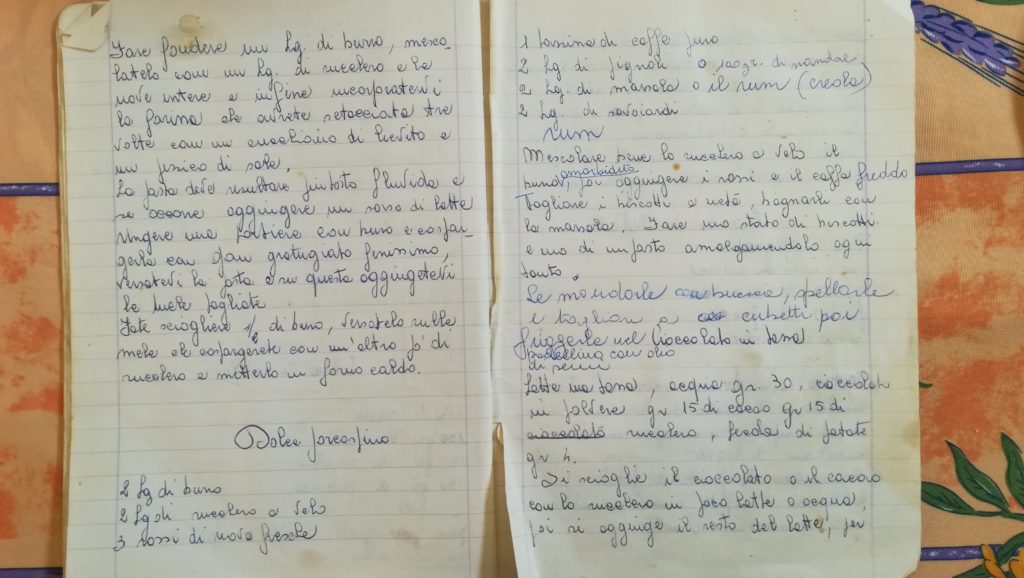 Fare fondere un hg. di burro, mesco-
latelo con un hg. di zucchero e le
uova intere e infine incorporatevi
la farina che avrete setacciata tre
volte con un cucchiaino di lievito e
un pizzico di sale.
La pasta deve risultare piutosto fluida e
se occorre aggiungere un sorso di latte
Ungere una tortiera con burro e cospar-
gerla con pan grattugiato finissimo,
versatevi la pasta e su questa aggiungetevi
le mele tagliate
Fate sciogliere di burro, versatelo sulle
mele che cospargerete con un'altro pò di
zucchero e metterlo in forno caldo.
Dolce porcospino
2 hg di burro
2 hg di zucchero a velo
3 rossi di uova fresche
1 tazzina di caffe puro
2 hg. di pignoli o 100gr. di mandorle
2 hg. di marsala o il rum (creola)
2 hg. di savoiardi
rum
Mescolare bene lo zucchero a velo il
ammorbidito
burro, poi aggiungere i rossi e il caffe freddo
Tagliare i biscotti a metá, bagnarli con
la marsala. Fare uno strato di biscotti
e uno di impasto amalgamandolo ogni
tanto.
Le mandorle buccia, spellarle
e tagliarle a cubetti poi
friggerle nel Cioccolato in tazza
padellino con olio
di semi
Latte una tazza, acqua gr. 30, cioccolato
in polvere gr 15 di cacao gr 15 di
cioccolato zucchero, fecola di patate
gr 4.
Si scioglie il cioccolato o il cacao
con lo zucchero in poco latte o acqua,
poi si aggiunge il resto del latte, per